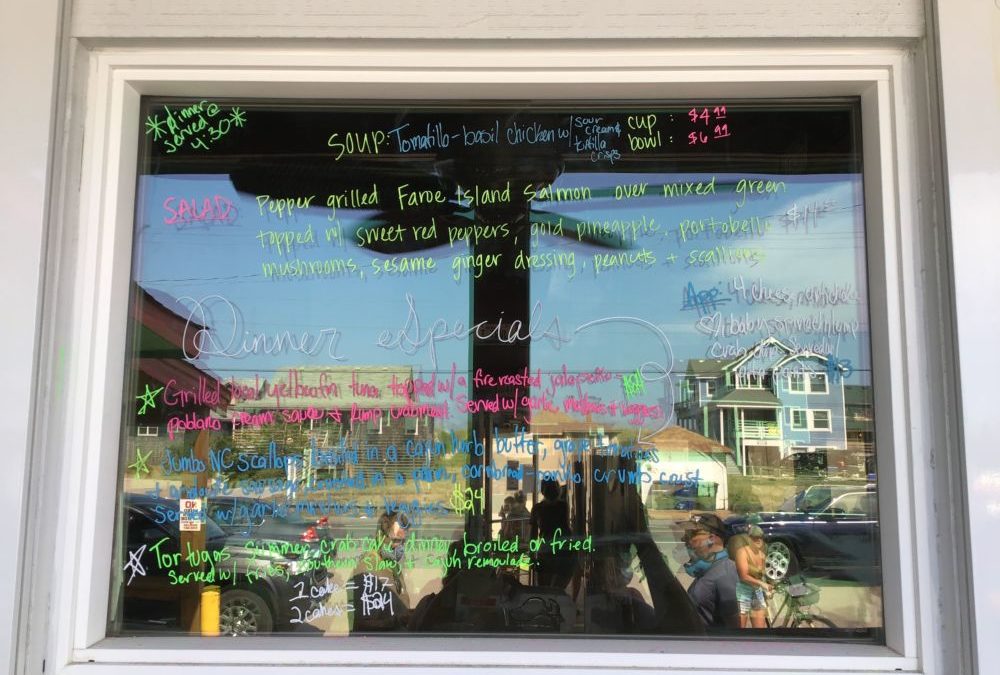 *Dinner @ *
Served
4:30
SOUP: Tomatillo-basil chicken w/ sour cream &
tortilla
crisps
cup : $4.99
bowl : $6.99
SALAD: Pepper grilled Faroe Island Salmon over mixed green
topped w/ sweet red peppers, gold pineapple, portobello
mushrooms, sesame ginger dressing, peanuts + scallions
App: 4 cheese,
crab
Dinner Specials
Grilled local yellowfin tuna topped w/ a fire roasted jalapeño-
poblano cream sauce + lump crabmeat. Served w/ garlic mashers + veggies!
Jumbo NC scallops broiled in a cajun herb butter, grape tomatoes
+ andouille sausage in a cornbread-panko crumb crust
Served w/ garlic mashers + veggies $24
Tortugas Summer crab cake dinner, broiled or fried.
Served w/ fries, southern slaw, + cajun remoulade.
1 cake = $17
2 cakes = $24